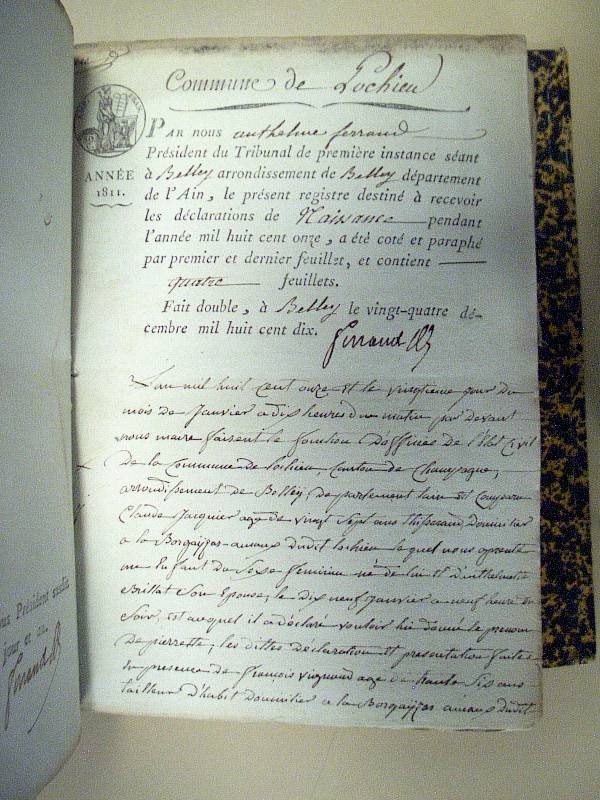 Commune de Lochieu
ANNÉE
1811.
PAR nous anthelme ferrand
Président du Tribunal de première instance séant
à Belley arrondissement de Belley département
de l'Ain, le présent registre destiné à recevoir
les déclarations de Naissance pendant
l'année mil huit cent onze, a été coté et paraphé
par premier et dernier feuillet, et contient
quatre feuillets.
Fait double, à Belley le vingt-quatre dé-
cembre mil huit cent dix.
ferrand
L'an mil huit cent onze et le vingtieme jour du
mois de Janvier a dix heures du matin par devant
nous maire faisant le fonction d'officier de l'Etat Civil
de la Commune de lochieu, canton de Champagne,
arrondissement de Belley, departement lain est Comparu
Claude Jacquier agé de vingt sept ans tisserand Domicilier
a la dudit lochieu le quel nous a presenté
un Enfant du Sexe feminin né de lui et d'anthelmette
Brillat Son Epouse, le dix neuf Janvier a neuf heure du
Soir, et auquel il a déclaré vouloir lui donné le prenom
de pierrette; les dittes déclaration et presentation faites
en presence de francois agé de trante Six ans
tailleur d'habit domicilier a la dudit
President susdit
jour et an.
ferrand